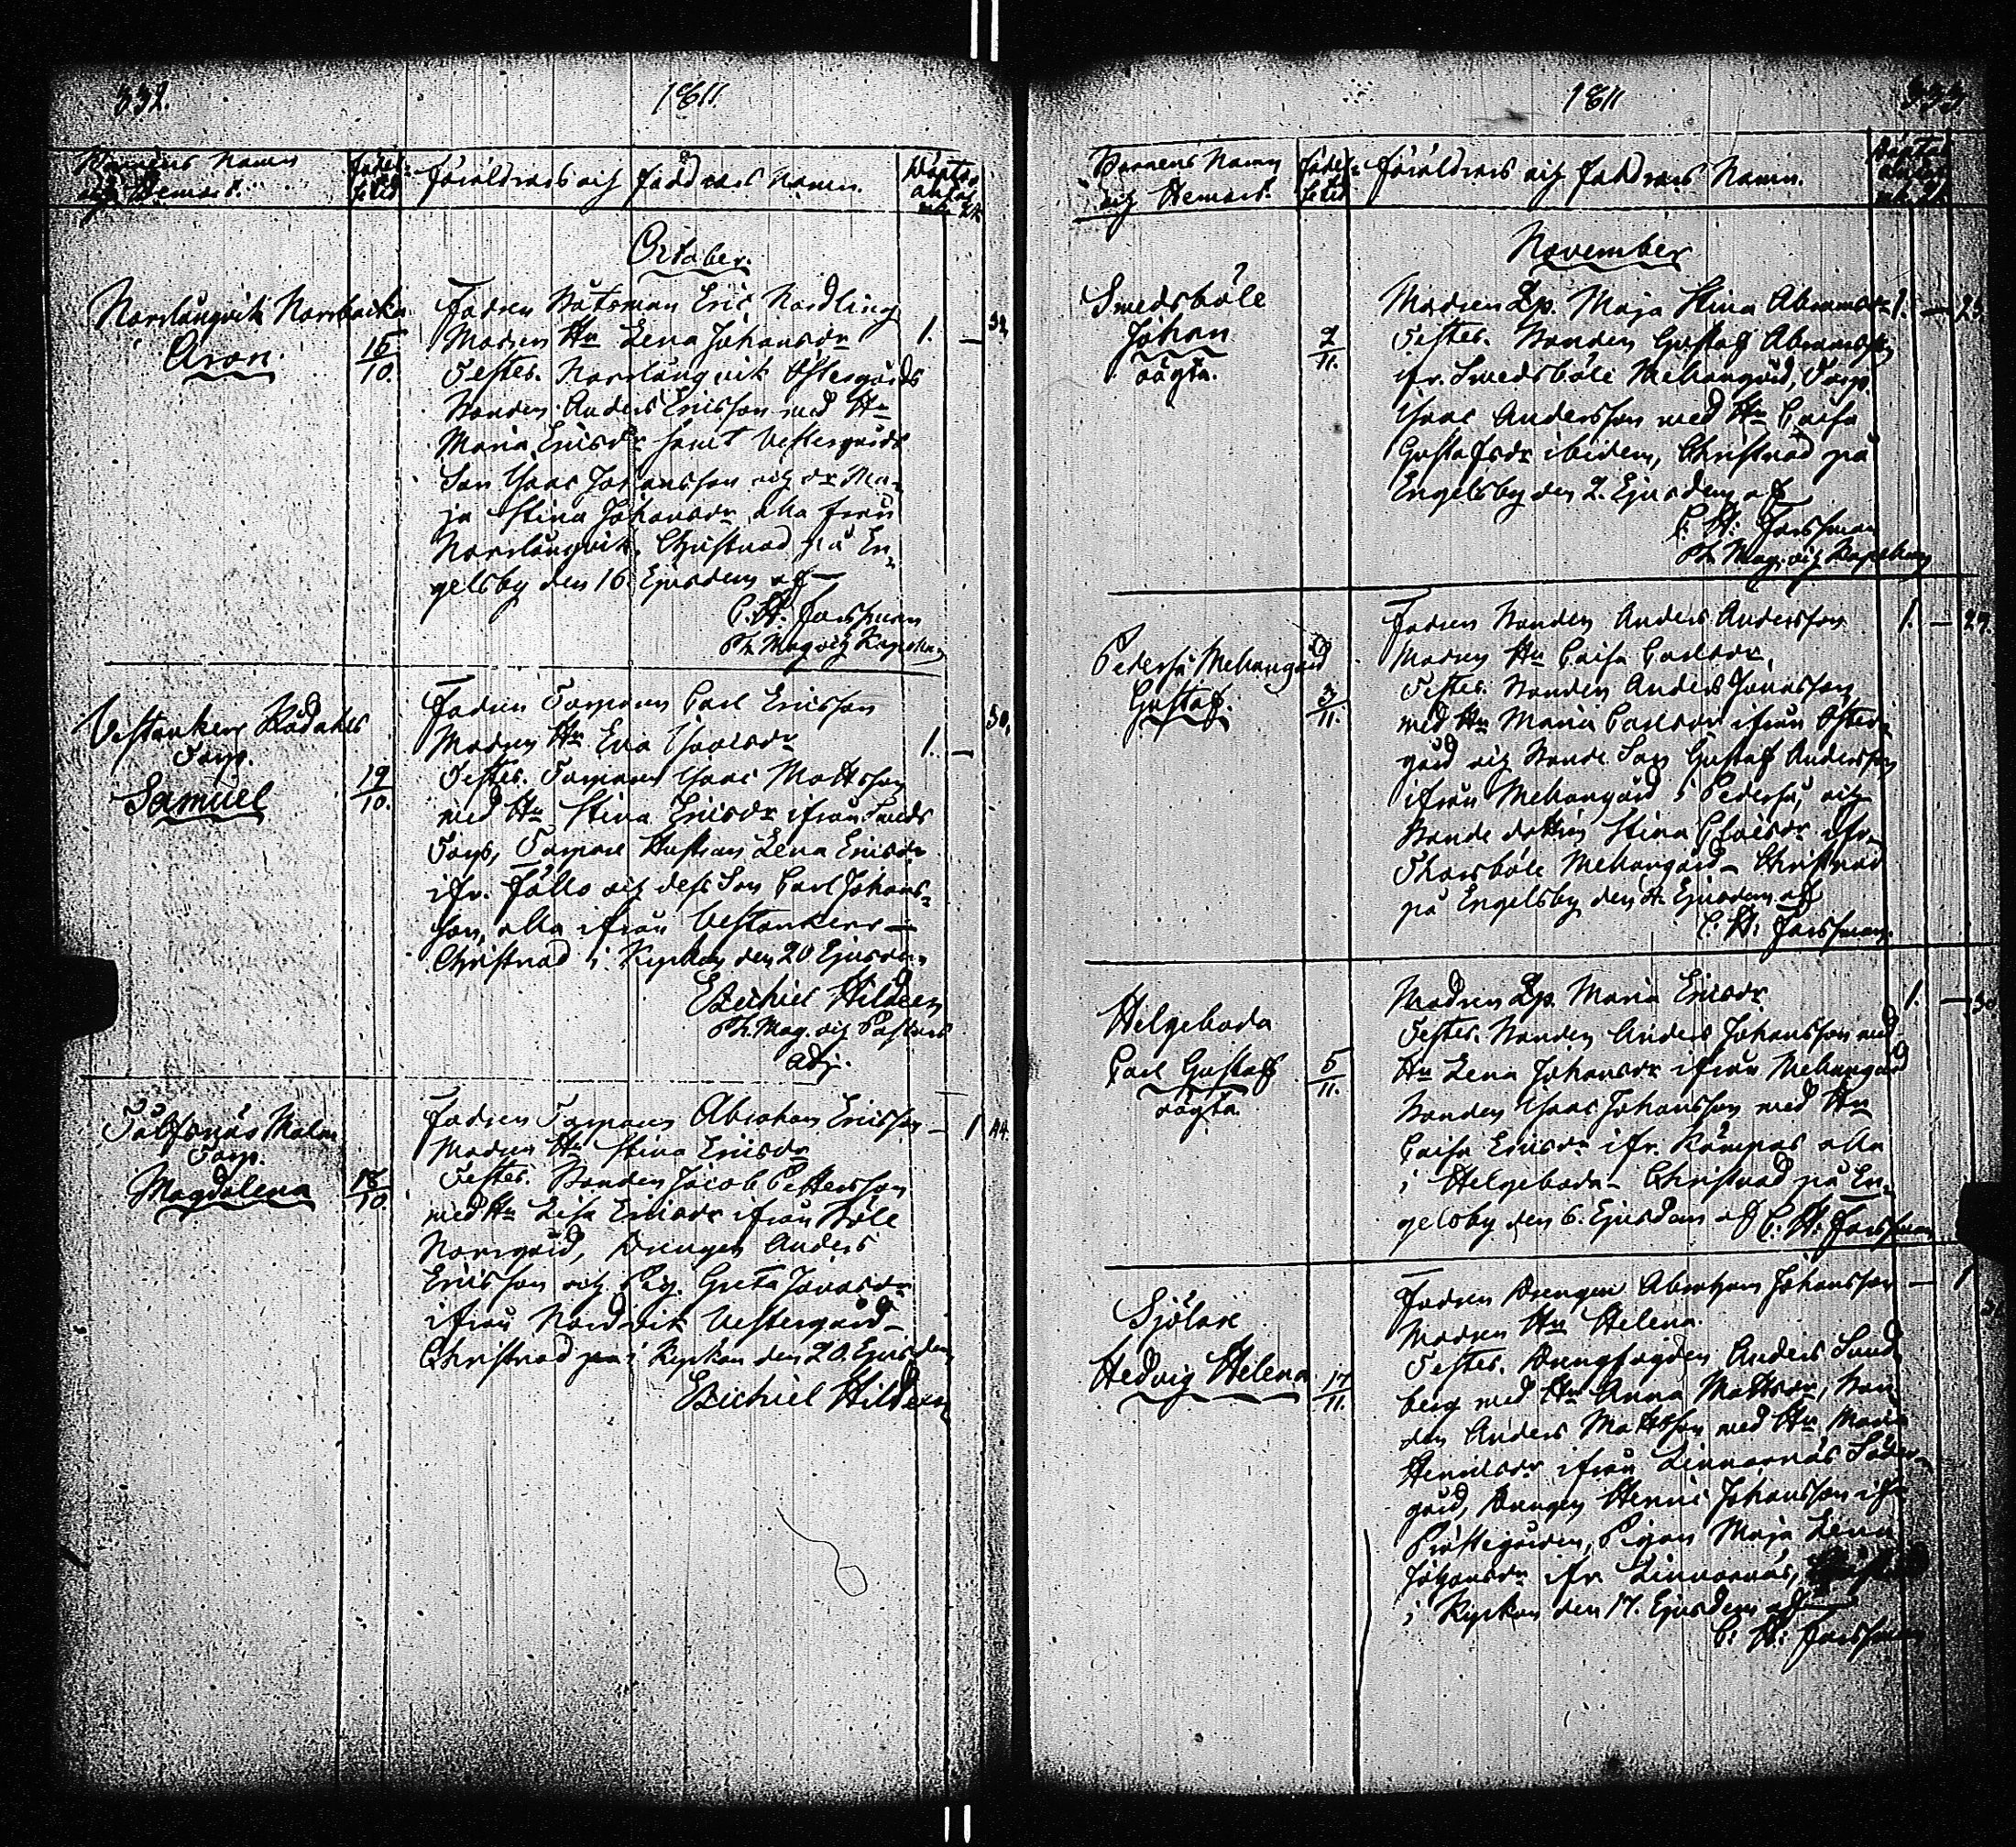 332.
1811.
Barnens Namn
och Hemvist.
födelse
tid
föräldrars och faddrars Namn.
October.
Norrlångvik Norrbacka
Aron.
15/10.
Fadren Båtsman Eric Nordling
Modren Hu Lena Johansdr
1. —
Testes. Norrlångvik Östergårds
Bonden Anders Ericsson med Hu
Maria Ericsdr samt Vestergårds
Son Isaac Johansson och dr Ma-
ja Stina Johansdr alla från
Norrlångvik. Christnad på En-
gelsby den 16 Ejusdem af
C. H. Forssman
Ph. Mag. och Kapellan
Vestankers Rådahls
Torp.
Samuel
19/10.
Fadren Torparen Carl Ericsson
Modren Hu Eva Isacsdr
1. —
30.
Testes. Torparen Isaac Mattsson
med Hu Stina Ericsdr ifrån
Torp, Torpare Hustrun Lena Ericsdr
ifr. Fälls och dess Son Carl Johans-
son, alla ifrån Vestankers —
Christnad i Kyrkan den 20 Ejusdem
Ezechiel Hildeen
Ph. Mag. och Pastors
Adj.
Malm
Torp.
Magdalena
18/10.
Fadren Torparen Abraham Ericsson
— 1
44.
Modren Hu Stina Ericsdr
Testes. Bonden Jacob Pettersson
med Hu Lisa Ericsdr ifrån Böle
Norrgård, Drengen Anders
Ericsson och Pig. Greta Jonasdr
ifrån Nordvik Vestergård —
Christnad i Kyrkan den 20. Ejusdem
Ezechiel Hildeen
1811
333
Barnens Namn
och Hemvist.
födelse
tid
föräldrars och faddrars Namn.
November
Smedsböle
Johan
oägta.
2/11.
Modren Lp. Maja Stina Abramsdr
1. — 23
Testes. Bonden Gustaf Abramsson
ifr. Smedsböle Mellangård, Torp.
Isaac Andersson med Hu Caisa
Gustafsdr ibidem, Christnad på
Engelsby den 2. Ejusdem af
C. H. Forssman
Ph. Mag. och Kapellan
Pederså Mellangård
Gustaf.
3/11.
Fadren Bonden Anders Andersson
1. —
Modren Hu Caisa Carlsdr,
Testes. Bonden Anders Jonasson
med Hu Maria Carlsdr ifrån Öster-
gård och Bonde Son Gustaf Andersson
ifrån Mellangård i Pederså, och
Bonde dottren Stina Ericsdr ifr.
Tharsböle Mellangård — Christnad
på Engelsby den 4. Ejusdem af
C. H. Forssman.
Helgeboda
Carl Gustaf
oägta.
5/11.
Modren Lp. Maria Ericsdr
1. — 30
Testes. Bonden Anders Johansson med
Hu Lena Johansdr ifrån Mellangård
Bonden Isaac Johansson med Hu
Caisa Ericsdr ifr. Kämpas alla
i Helgeboda — Christnad på En-
gelsby den 6. Ejusdem af C. H. Forssman
Sjölax
Hedvig Helena
17/11.
Fadren Drengen Abraham Johansson
— 1
Modren Hu Helena
Testes. Drengfogden Anders Sund-
berg med Hu Anna Mattsdr, Bon-
den Anders Mattsson med Hu Maria
Henricsdr ifrån Linnarnäs Söder-
gård, Drengen Henric Johansson ifr
Prästegården, Pigan Maja Lena
Johansdr ifr Linnarnäs,
i Kyrkan den 17. Ejusdem af
C. H. Forssman